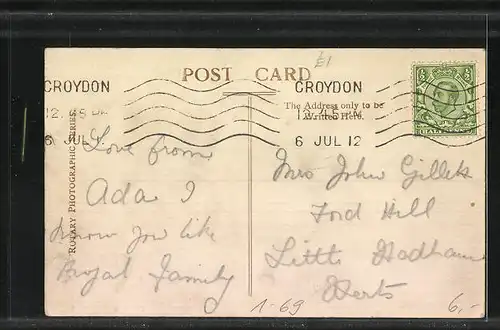 £1
POST CARD
The Address only to be
Written Here.
CROYDON
12.45 PM
6 JUL 12
CROYDON
12.45 PM
6 JUL 12
ROTARY PHOTOGRAPHIC SERIES.
Love from
Ada I
know you like
Royal Family
Mrs John Gillett
Ford Hill
Little Hadham
Herts
1-69
6,-